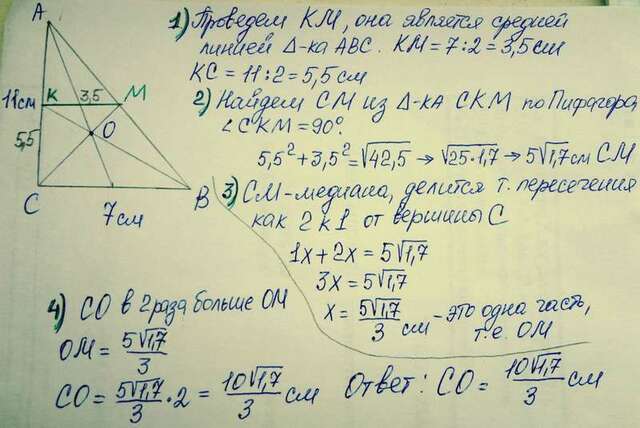 A
1) Проведем KM, она является средней
линией Δ-ка ABC. KM = 7:2 = 3,5 см
KC = 11:2 = 5,5 см
11см
K
3,5
M
2) Найдем CM из Δ-ка CKM по Пифагора
∠CKM = 90°.
O
5,5
5,5² + 3,5² = √42,5 → √25·1,7 → 5√1,7 см CM
C
7см
B
3) CM - медиана, делится т. пересечения
как 2 к 1 от вершины C
1x + 2x = 5√1,7
3x = 5√1,7
x = 5√1,7/3 см - это одна часть,
т.е. OM
4) CO в 2 раза больше OM
OM = 5√1,7/3
CO = 5√1,7/3 · 2 = 10√1,7/3 см
Ответ: CO = 10√1,7/3 см